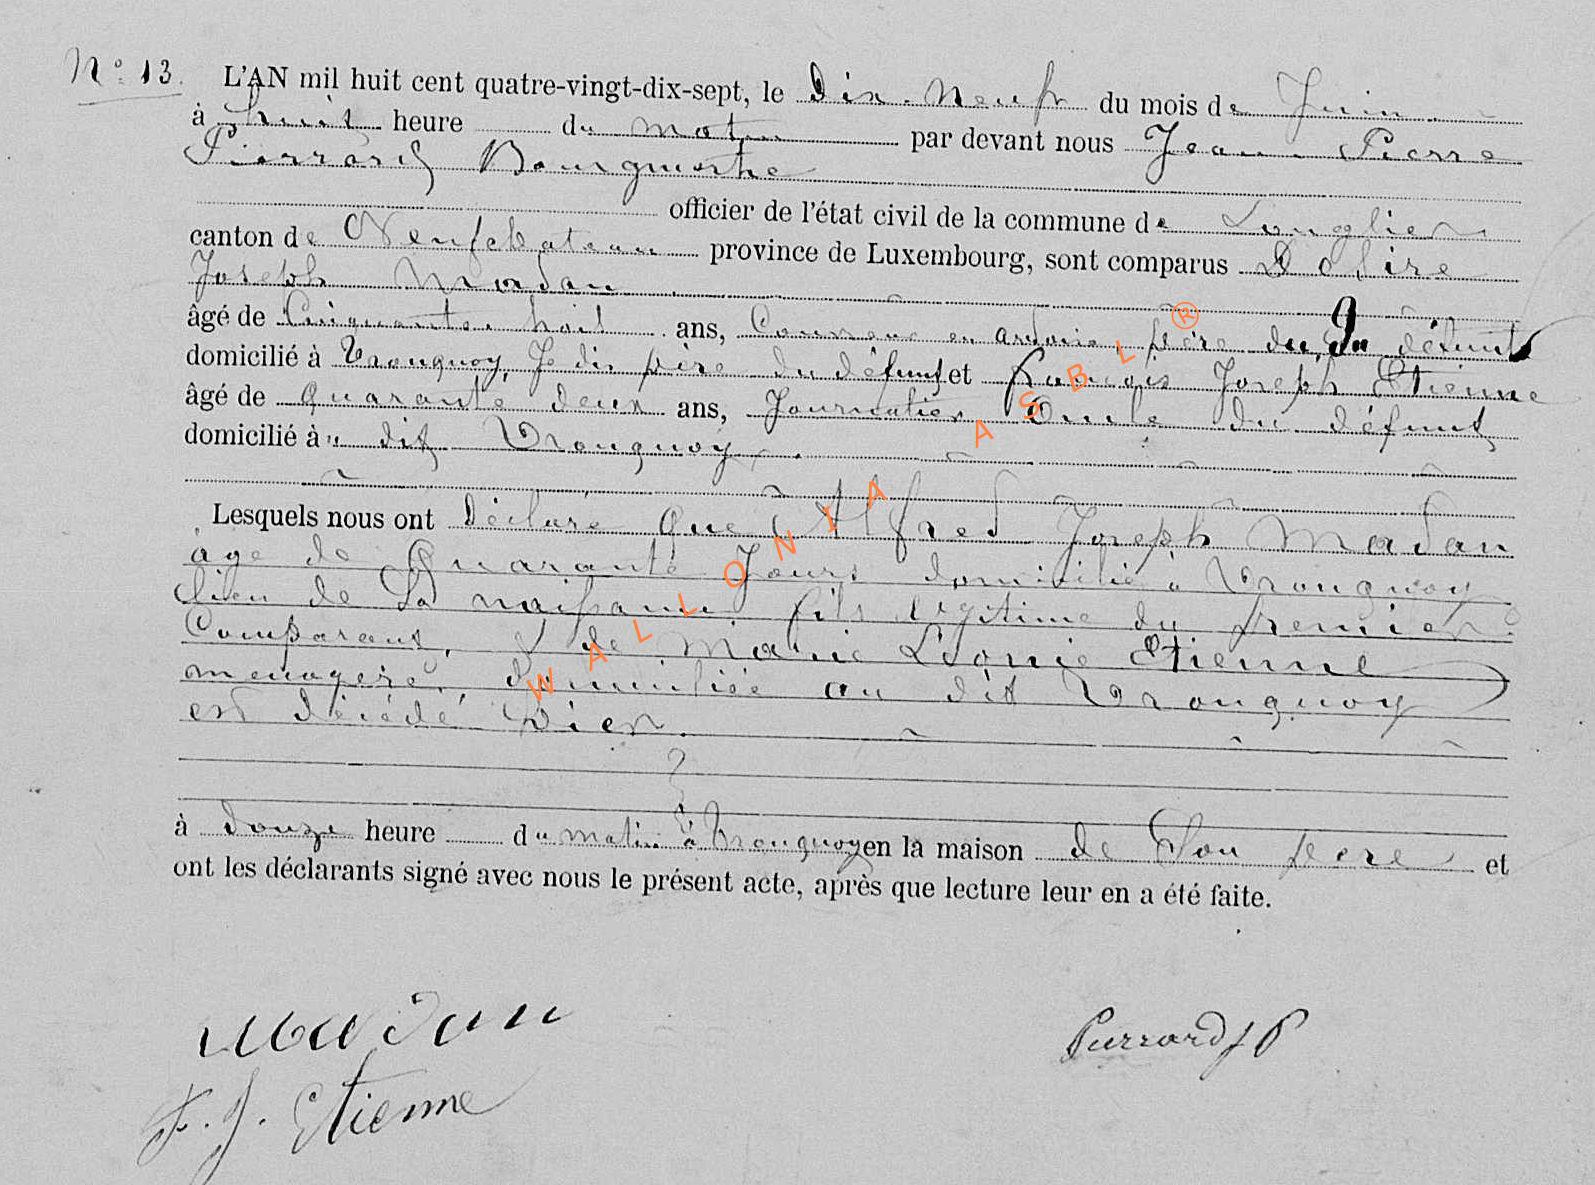 N° 13. L'AN mil huit cent quatre-vingt-dix-sept, le dix-neuf du mois de Juin
à huit heure du matin par devant nous Jean Pierre
Pierrard Bourgmestre
officier de l'état civil de la commune de Longlier
canton de Neufchateau province de Luxembourg, sont comparus Désiré
Joseph Madan
âgé de Cinquante huit ans, Couvreur en ardoise, père du défunt
domicilié à Tronquoy, Je dis père du défunt et François Joseph Etienne
âgé de Quarante deux ans, Journalier Oncle du défunt
domicilié à dit Tronquoy
Lesquels nous ont déclaré que Alfred Joseph Madan
agé de Quarante Jours domicilié à Tronquoy
lieu de sa naissance fils légitime du premier
Comparant, & de Marie Léonie Etienne
menagère, domiciliée au dit Tronquoy
est décédé hier
à douze heure du matin à Tronquoy en la maison de Son père et
ont les déclarants signé avec nous le présent acte, après que lecture leur en a été faite.
Madan
Pierrard J P
F. J. Etienne
WALLONIA ASBL ®